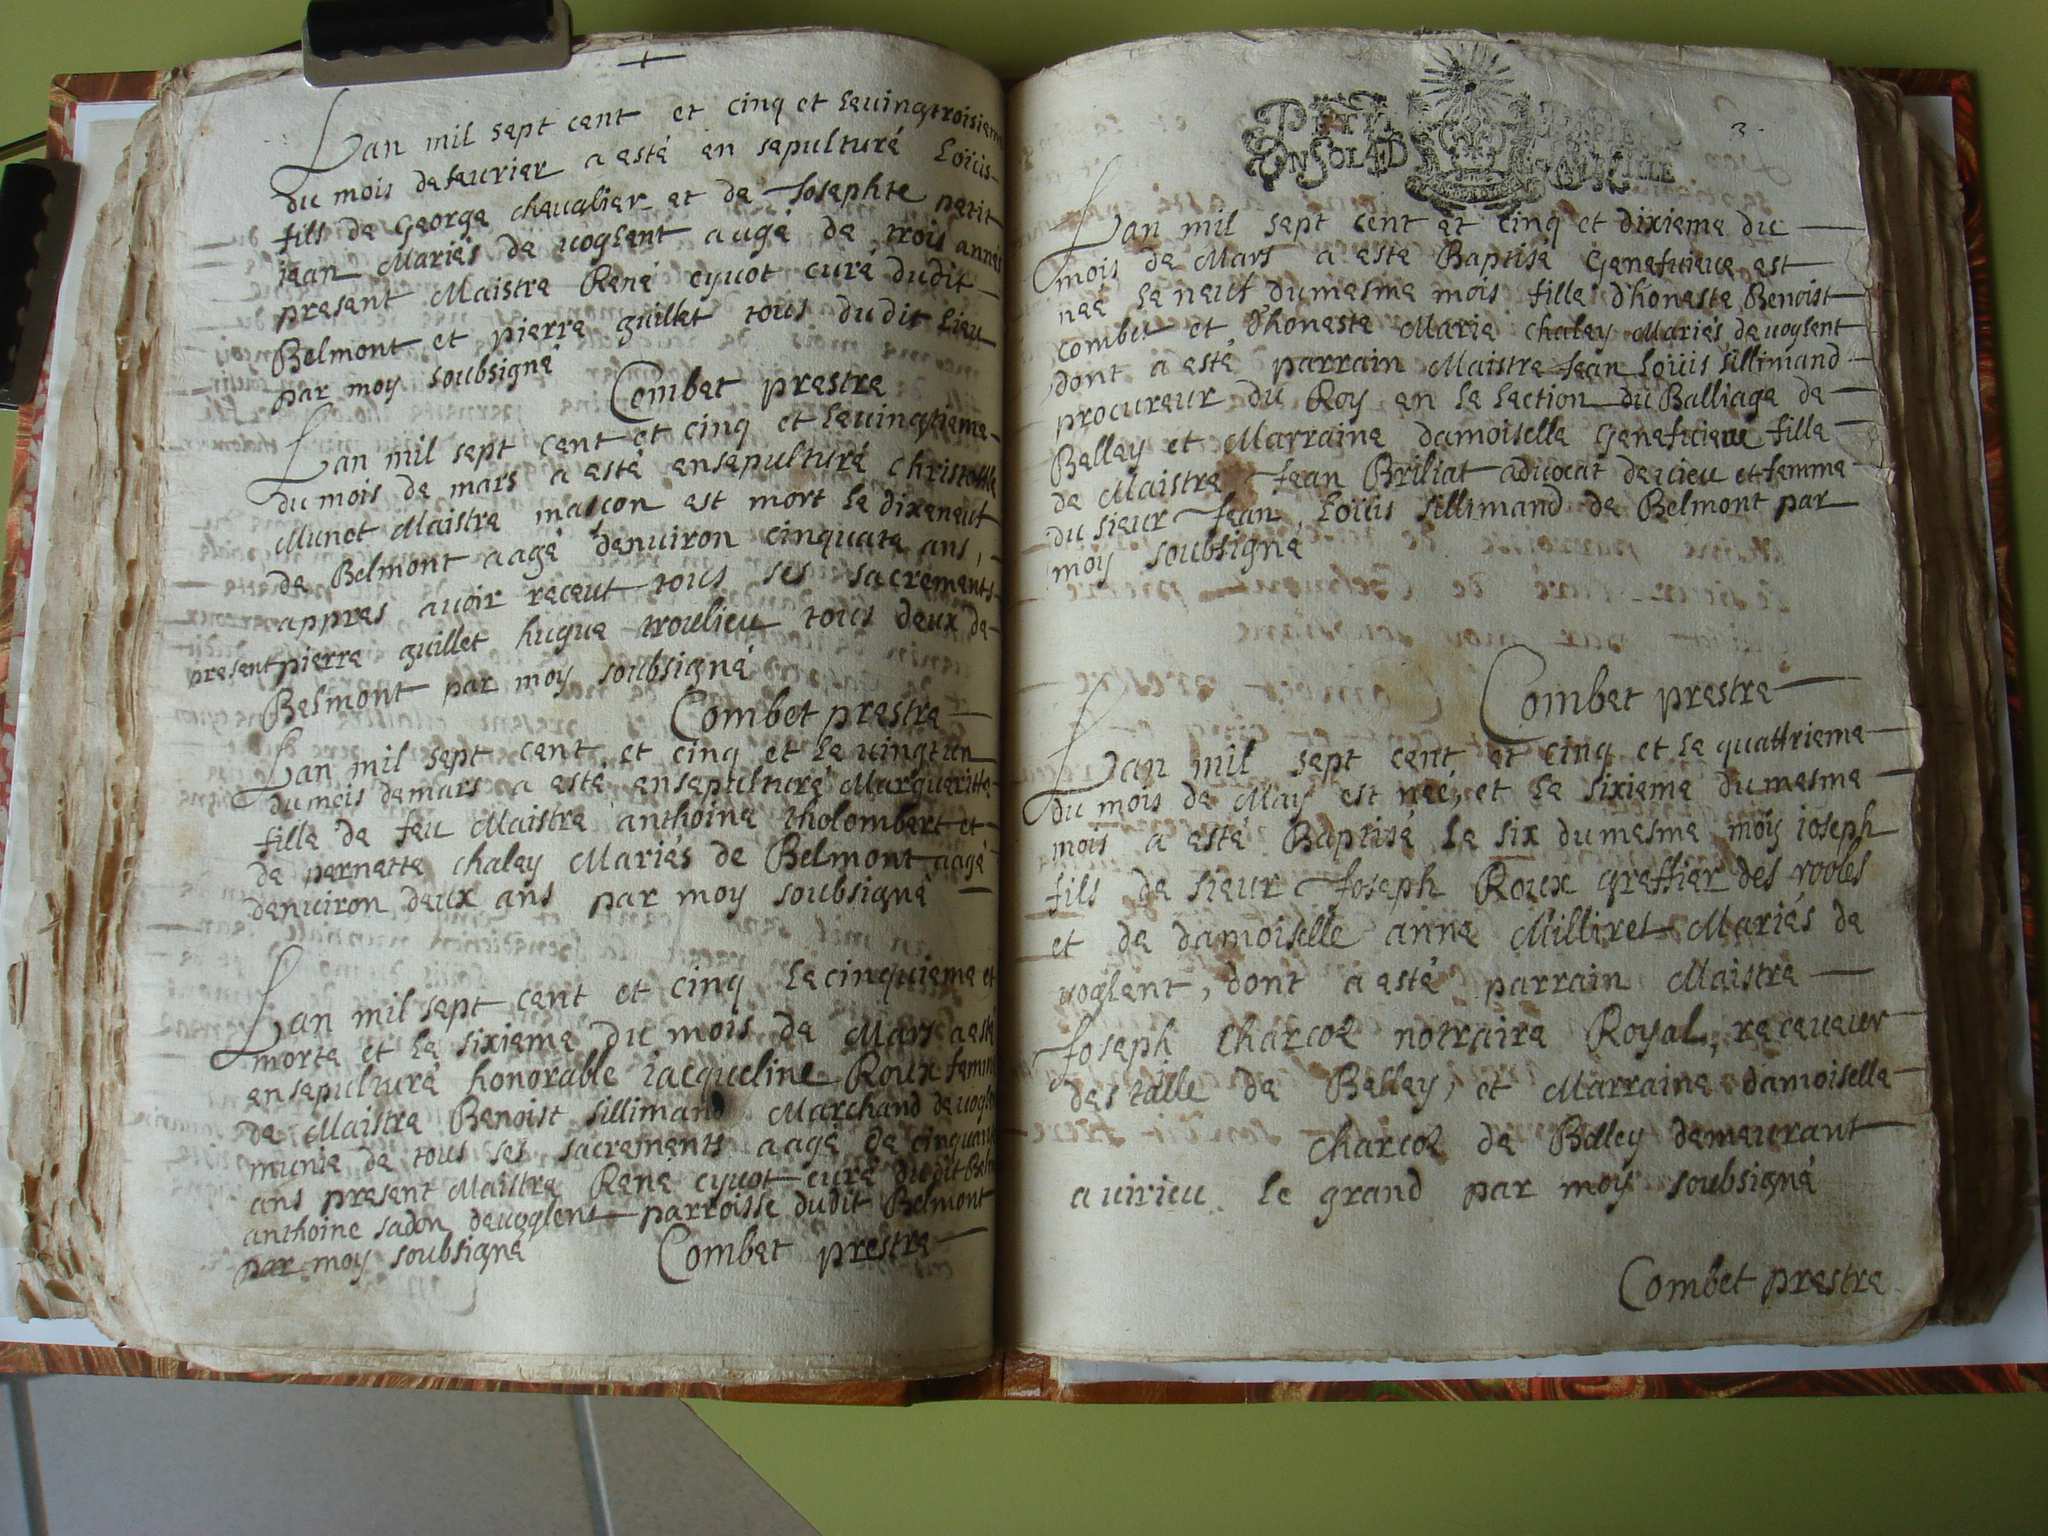 Lan mil sept cent et cinq et le vingtroisieme
du mois de feurier a esté en sepulturé Loüis
fils de George chevalier et de Josephte petit
jean Mariés de voglent augé de trois annés
present Maistre René eyvot curé dudit
Belmont et pierre guillet tous dudit Lieu
par moy soubsigné
Combet prestre
Lan mil sept cent et cinq et le vingtieme
du mois de mars a esté ensepulturé christofle
Munet Maistre masçon est mort le dixeneuf
de Belmont aagé denuiron cinquate ans,
appres avoir receut tous ses sacrements
present pierre guillet hugue troulieu tous deux de
Belmont par moy soubsigné
Combet prestre
Lan mil sept cent et cinq et le vingt un
du mois de mars a este ensepulturé Margueritte
fille de feu Maistre anthoine tholombert et
de pernette chaley Mariés de Belmont aagé
denuiron deux ans par moy soubsigné
Lan mil sept cent et cinq le cinquieme et
morte et le sixieme du mois de Mars a esté
ensepulturé honorable Jacqueline Roux femme
de Maistre Benoist sillimand Marchand de voglent
munie de tous ses sacrements aagé de cinquante
ans present Maistre René eyvot curé dudit Belm
anthoine sadon de voglent parroisse dudit Belmont
par moy soubsigné
Combet prestre
3.
Lan mil sept cent et cinq et dixieme du
mois de Mars a esté Baptisé Genefuieue est
née le neuf du mesme mois fille d'honeste Benoist
combet et d'honeste Marie chaley Mariés de voglent
dont a esté parrain Maistre Jean Loüis sillimand
procureur du Roy en le lection du Balliage de
Belley et Marraine damoiselle Genefuieue fille
de Maistre Jean Briliat aduocat de lieu et femme
du sieur Jean Loüis sillimand de Belmont par
moy soubsigné
Combet prestre
Lan mil sept cent et cinq et le quattrieme
du mois de May est neé, et le sixieme du mesme
mois a esté Baptisé le six du mesme moy ioseph
fils de sieur Joseph Roux greffier des rooles
et de damoiselle anne Milliret Mariés de
voglent, dont a esté parrain Maistre
Joseph Charcot notraire Royal, receueur
des talle de Belley, et Marraine damoiselle
charcot de Belley demeurant
a virieu le grand par moy soubsigné
Combet prestre